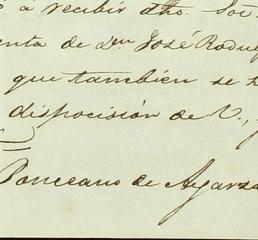 á recibir dho. Sor.
enta de Dn. José Rodrig
que tambien se h
disposicisión de V.,
Ponceano de Agarza